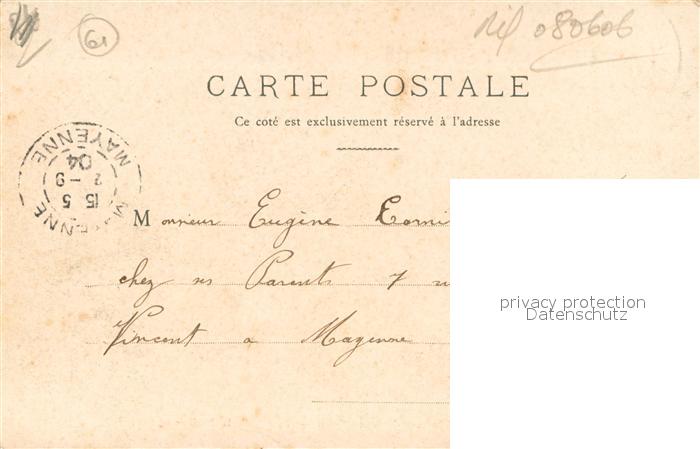 61
Ril 080606
CARTE POSTALE
Ce coté est exclusivement réservé à l'adresse
MAYENNE MAYENNE
15 5
2 - 9
04
Monsieur Eugène
chez ses Parents 7
Vincent a Mayenne
privacy protection
Datenschutz